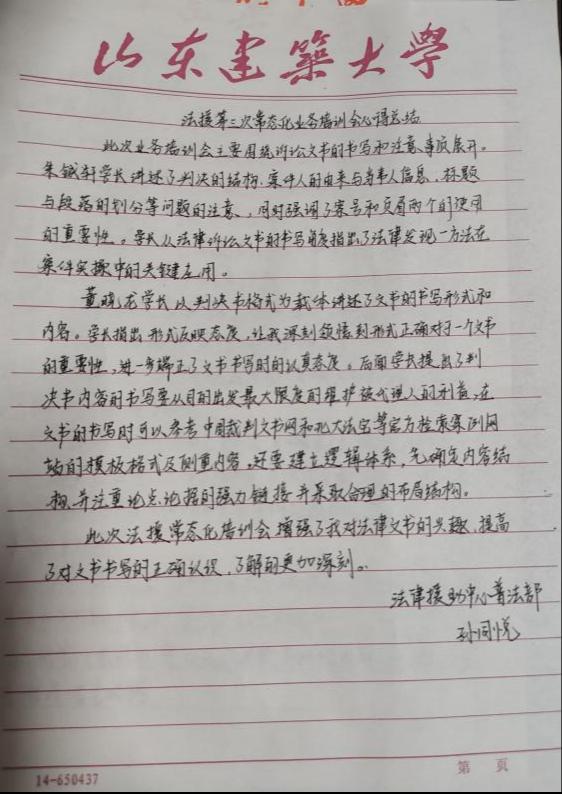 山东建築大學
法援第三次常态化业务培训会心得总结
此次业务培训会主要围绕诉讼文书的书写和注意事项展开。
朱钺轩学长讲述了判决的结构、案件人的由来与当事人信息、标题
与段落的划分等问题的注意,同时强调了案号和页眉两个的使用
的重要性。学长从法律诉讼文书的书写角度指出了法律发现一方法在
案件实操中的关键左用。
董晓龙学长以判决书格式为载体讲述了文书的书写形式和
内容。学长指出形式反映态度,让我深刻领悟到形式正确对于一个文书
的重要性,进一步端正了文书书写时的认真态度。后面学长提出了判
决书内容的书写要从目的出发最大限度的维护被代理人的利益,在
文书的书写时可以参考中国裁判文书网和北大法宝等官方检索案例网
站的模板格式及侧重内容。还要建立逻辑体系,先确定内容结
构并注重论点论据的强力链接并采取合理的布局结构。
此次法援常态化培训会增强了我对法律文书的兴趣,提高
了对文书书写的正确认识,了解的更加深刻。
法律援助中心普法部
孙同悦
14-650437
第 頁